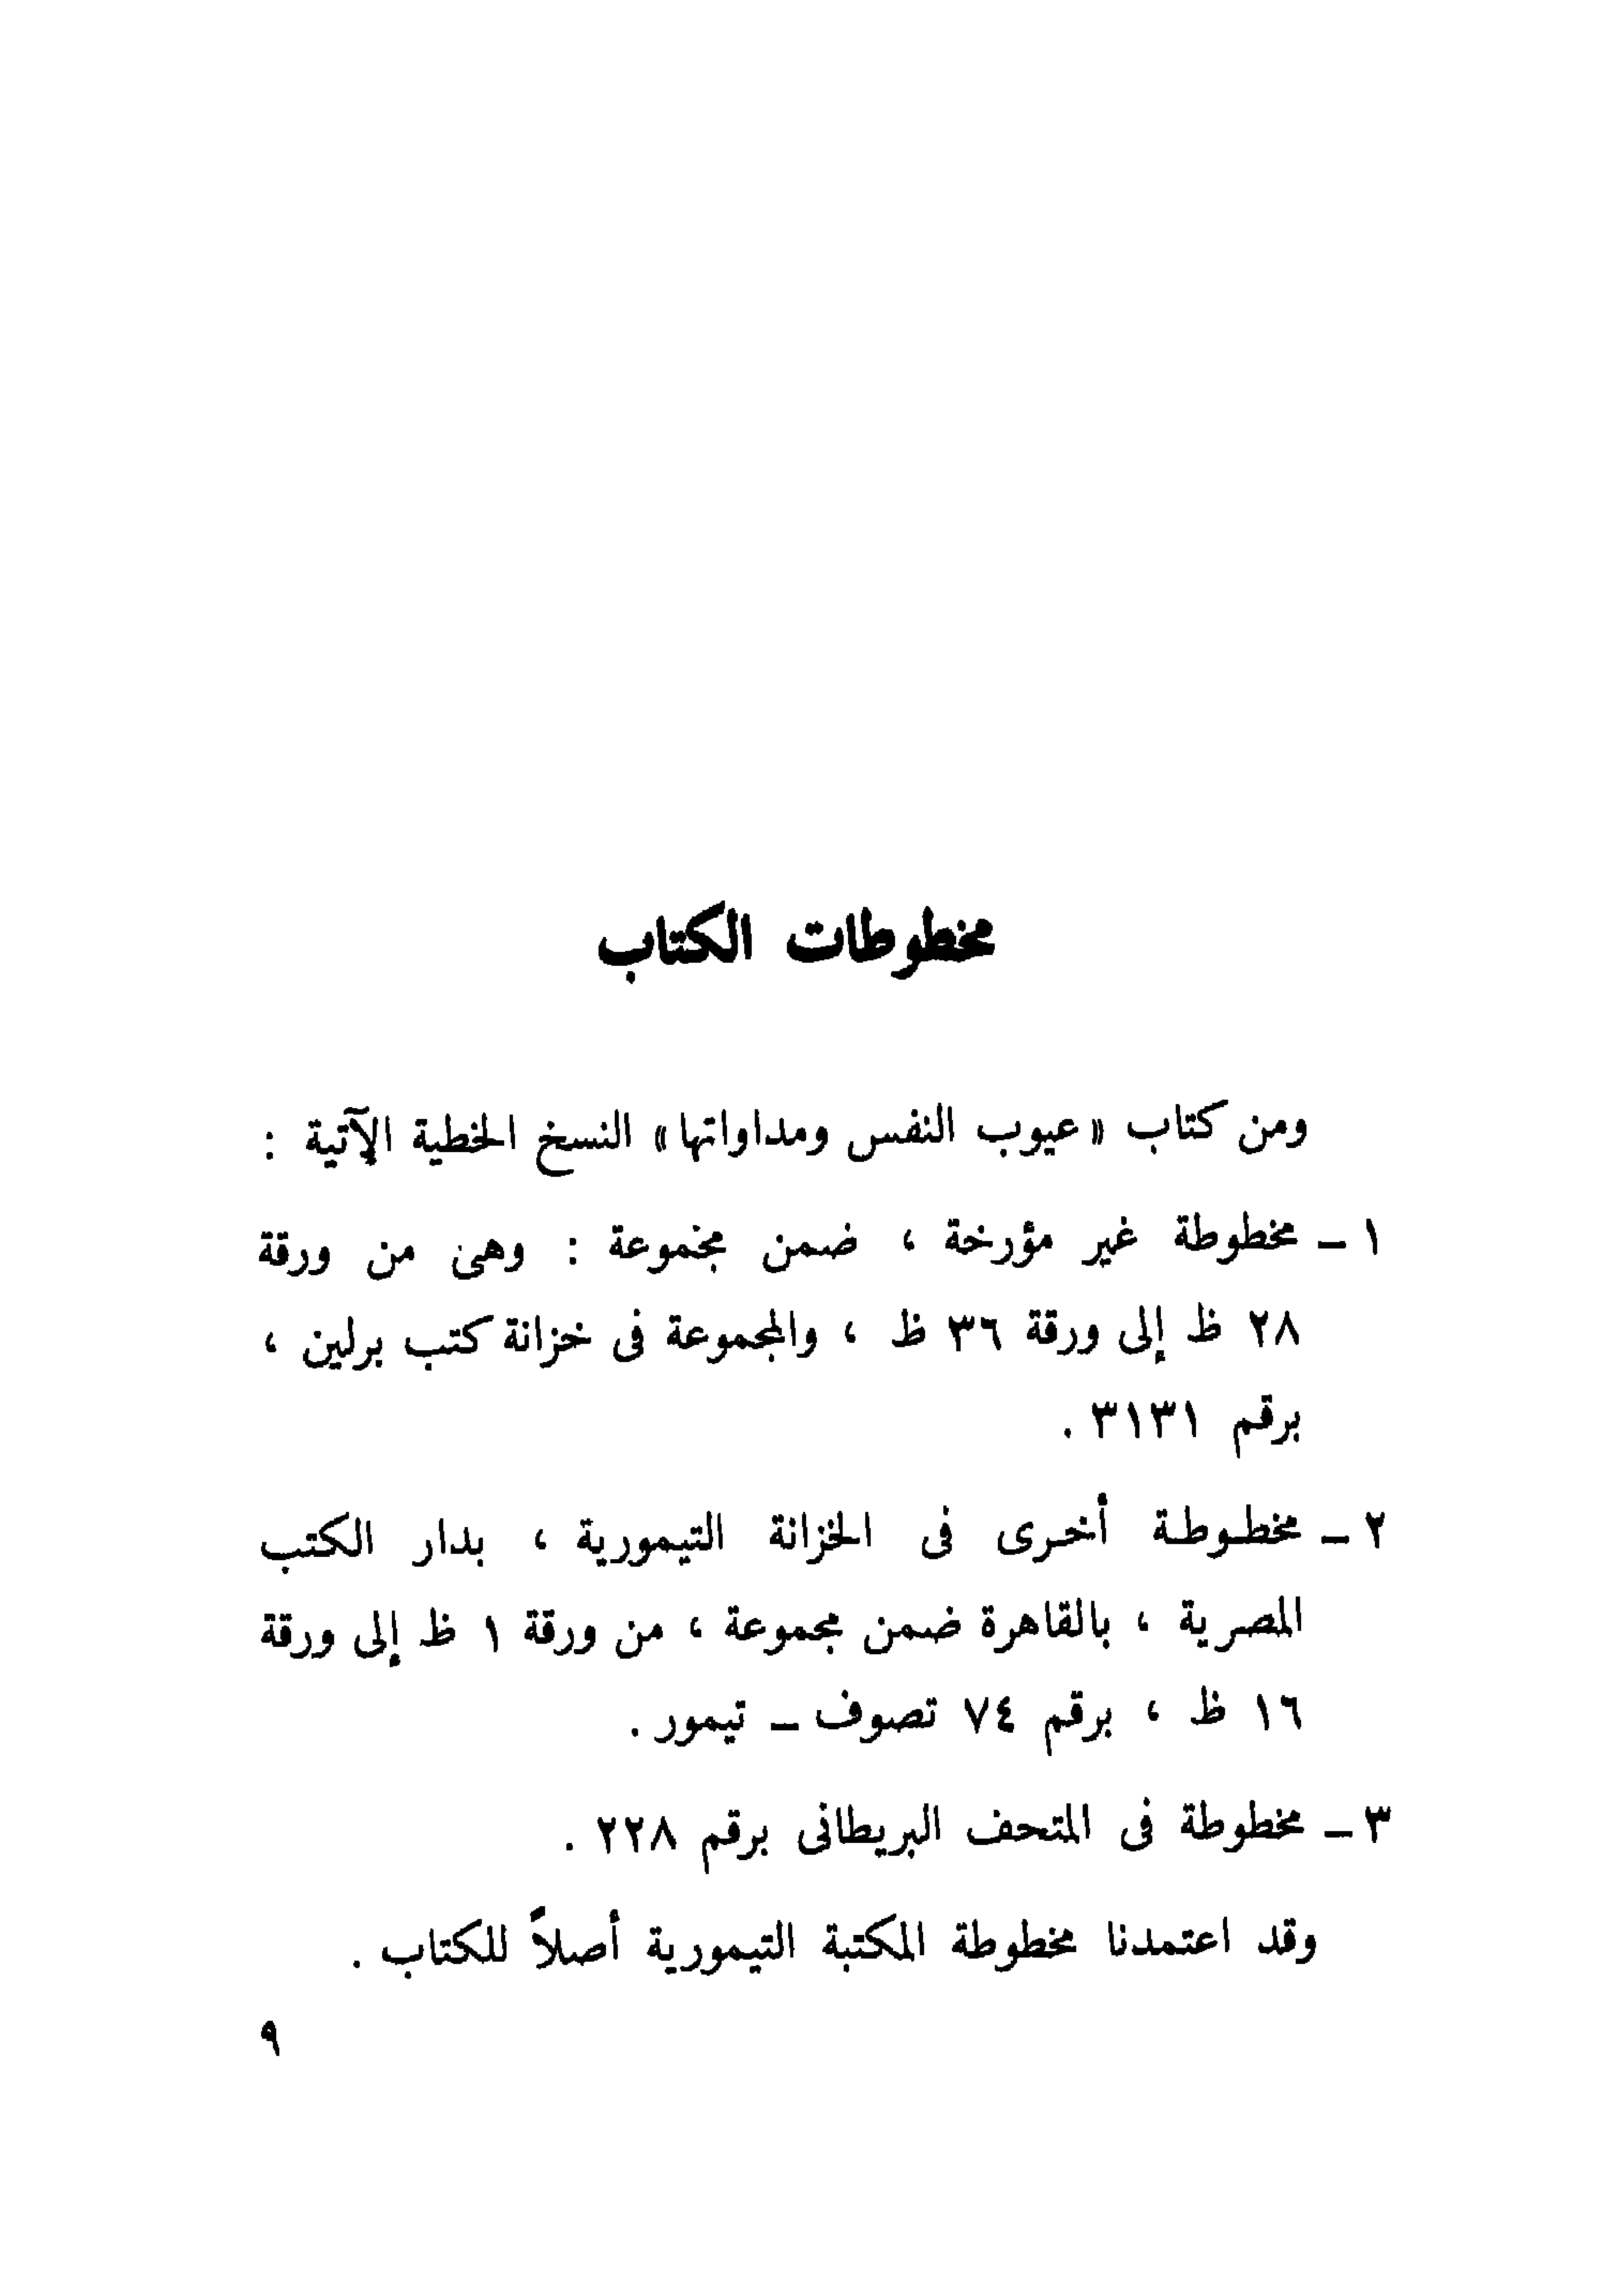 مخطوطات الكتاب
ومن كتاب «عيوب النفس ومداواتها» النسخ الخطية الآتية :
١ – مخطوطة غير مؤرخة ، ضمن مجموعة : وهى من ورقة
٢٨ ظ إلى ورقة ٣٦ ظ ، والمجموعة فى خزانة كتب برلين ،
برقم ٣١٣١ .
٢ – مخطوطة أخرى فى الخزانة التيمورية ، بدار الكتب
المصرية ، بالقاهرة ضمن مجموعة ، من ورقة ١ ظ إلى ورقة
١٦ ظ ، برقم ٧٤ تصوف – تيمور .
٣ – مخطوطة فى المتحف البريطانى برقم ٢٢٨ .
وقد اعتمدنا مخطوطة المكتبة التيمورية أصلاً للكتاب .
٩